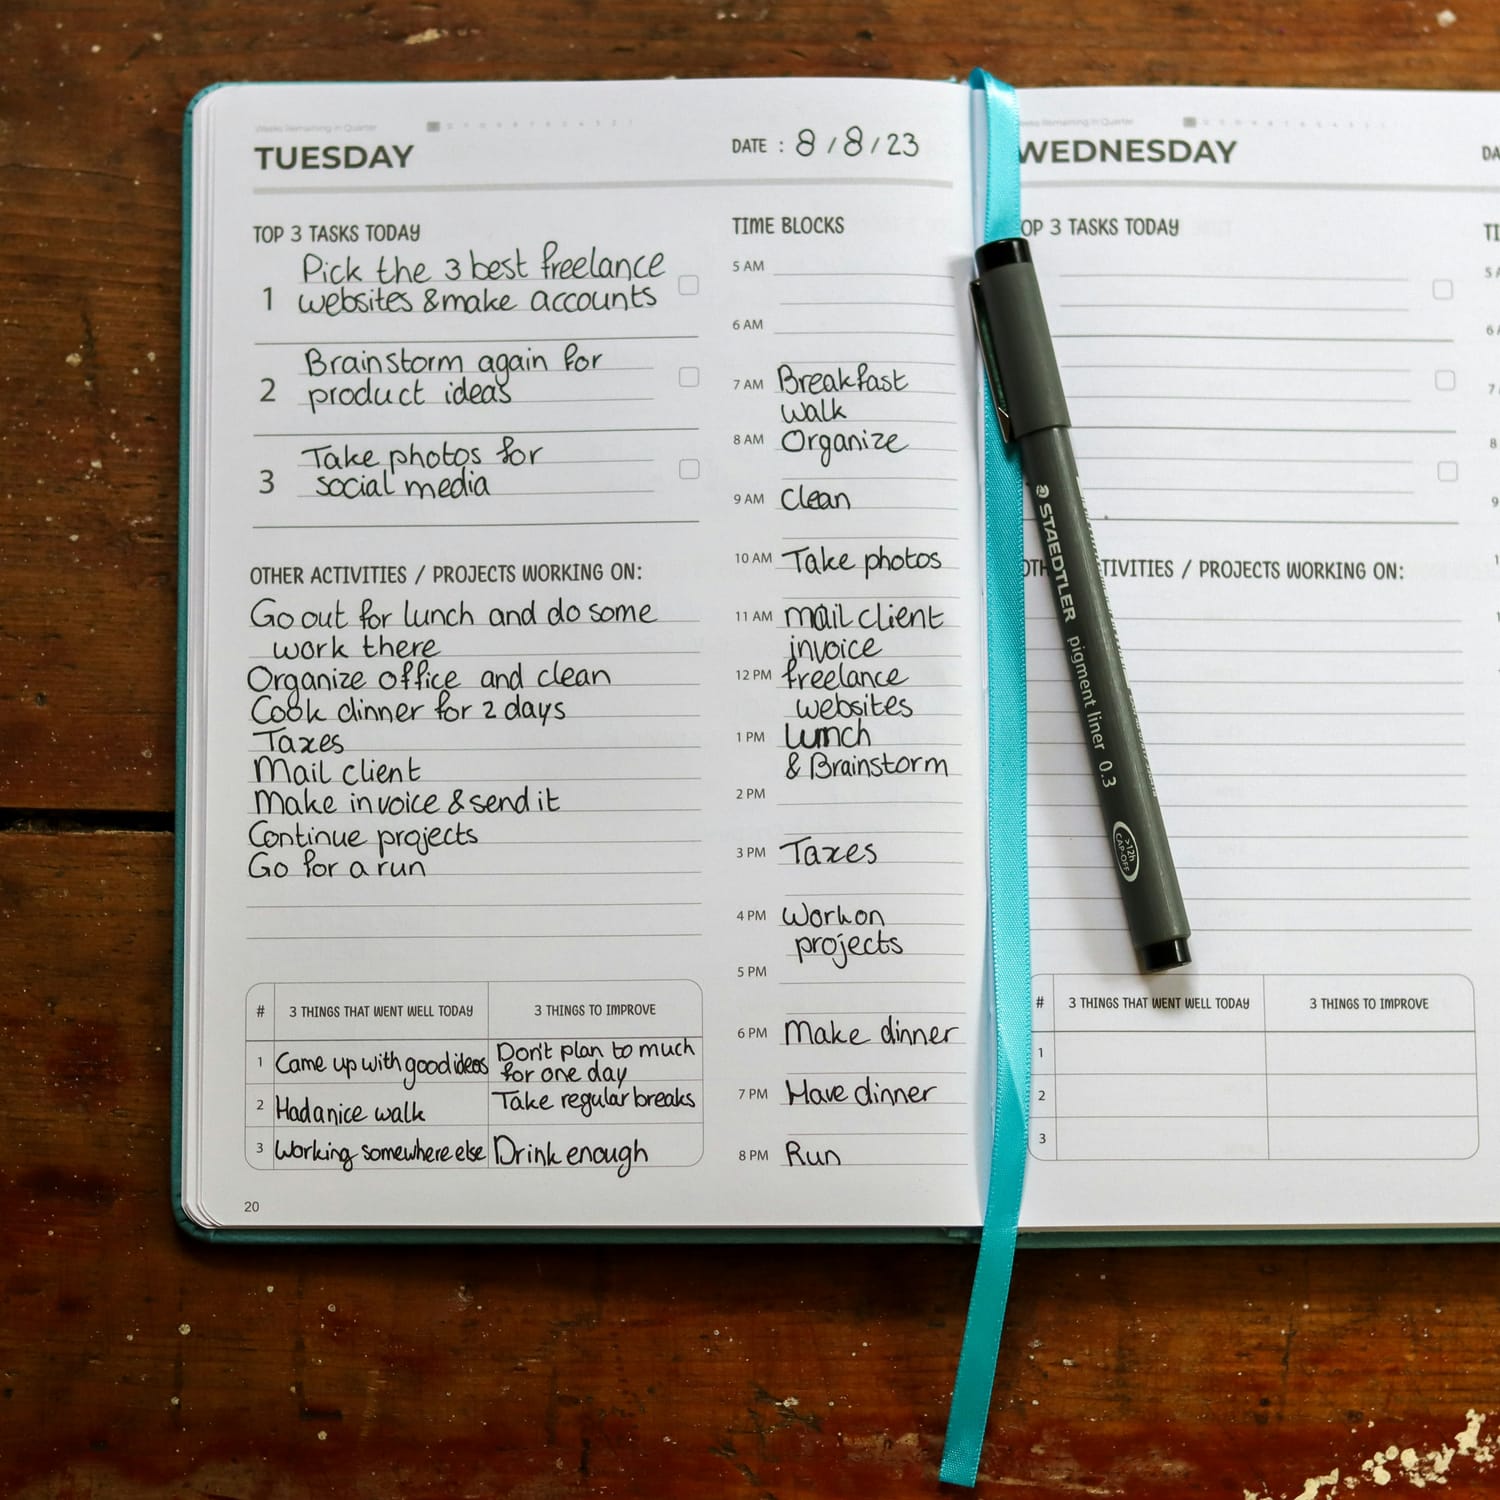 Weeks Remaining in Quarter
TUESDAY
DATE : 8 / 8 / 23
TOP 3 TASKS TODAY
1
Pick the 3 best freelance
websites & make accounts
2
Brainstorm again for
product ideas
3
Take photos for
social media
OTHER ACTIVITIES / PROJECTS WORKING ON:
Go out for lunch and do some
work there
Organize office and clean
Cook dinner for 2 days
Taxes
Mail client
Make invoice & send it
Continue projects
Go for a run
# 3 THINGS THAT WENT WELL TODAY 3 THINGS TO IMPROVE
1 Came up with good ideas Don't plan to much
for one day
2 Had a nice walk Take regular breaks
3 Working somewhere else Drink enough
20
TIME BLOCKS
5 AM
6 AM
7 AM Breakfast
walk
8 AM Organize
9 AM Clean
10 AM Take photos
11 AM Mail client
invoice
12 PM freelance
websites
1 PM Lunch
& Brainstorm
2 PM
3 PM Taxes
4 PM Work on
projects
5 PM
6 PM Make dinner
7 PM Have dinner
8 PM Run
Remaining in Quarter
WEDNESDAY
DA
OP 3 TASKS TODAY
TI
OTH TIVITIES / PROJECTS WORKING ON:
# 3 THINGS THAT WENT WELL TODAY 3 THINGS TO IMPROVE
1
2
3
STAEDTLER pigment liner 0.3
>12h
CAP-OFF